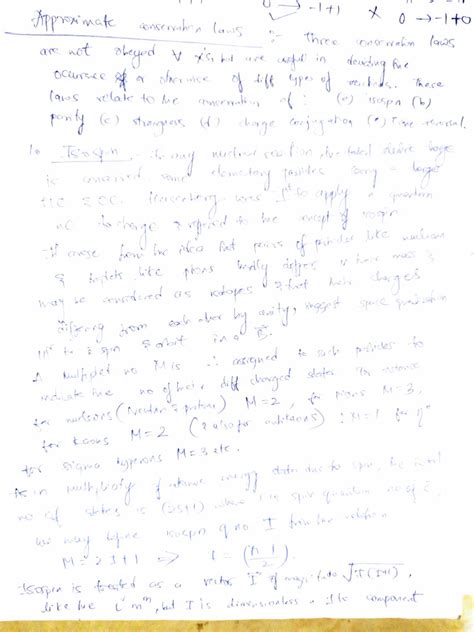 0 → -1+1 x 0 → -1+0
Approximate conservation laws :- Three conservation laws
are not obeyed ∀ x's, but are useful in deciding the
occurence of a otherwise of diff types of reactions. These
laws relate to the conservation of : (a) isospin (b)
parity (c) strangeness (d) charge conjugation (e) Time reversal.
1. Isospin, In any nuclear reaction, the total electric charge
is conserved, some elementary particles carry a larger
Heisenberg was 1st to apply a quantum
no. to charge & referred to the concept of isospin
It arose from the idea that pairs of particles like nucleons
& triplets like pions hardly differ in their mass &
may be considered as isotopes that their charges
differing from each other by unity, suggest space quantisation
to spin & orbit in a
A multiplet no M is ∴ assigned to such particles to
indicate the no of their diff charged states. For instance
for nucleons (neutron & proton) M = 2, for pions M = 3,
for Kaons M = 2 (2 also for antikaons) ; M = 1 for η°
for sigma hyperons M = 3 etc.
As in multiplicity of atomic energy states due to spin, the total
no of states is (2s+1) where s is spin quantum no of
we may define isospin q no I from the relation
M = 2I+1 ⇒ I = (M-1/2)
Isospin is treated as a vector I of magnitude √I(I+1),
like the but I is dimensionless & its component